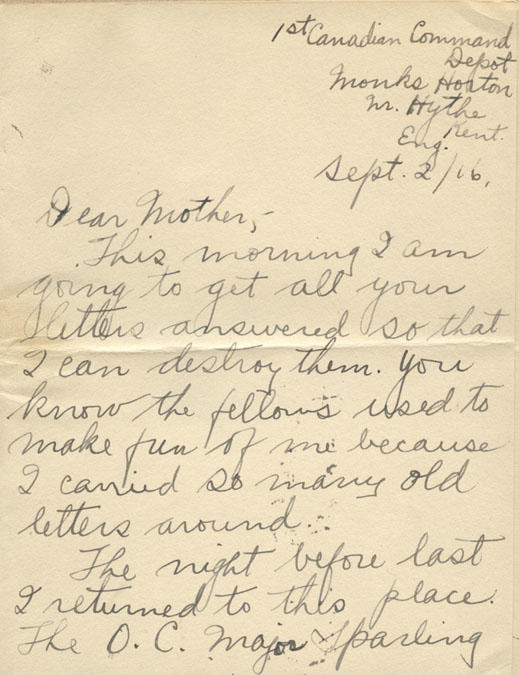 1st Canadian Command
Depot
Monks Horton
Nr. Hythe
Kent.
Eng.
Sept. 2/16.
Dear Mother,-
This morning I am
going to get all your
letters answered so that
I can destroy them. You
know the fellows used to
make fun of me because
I carried so many old
letters around.
The night before last
I returned to this place.
The O.C. Major Sparling